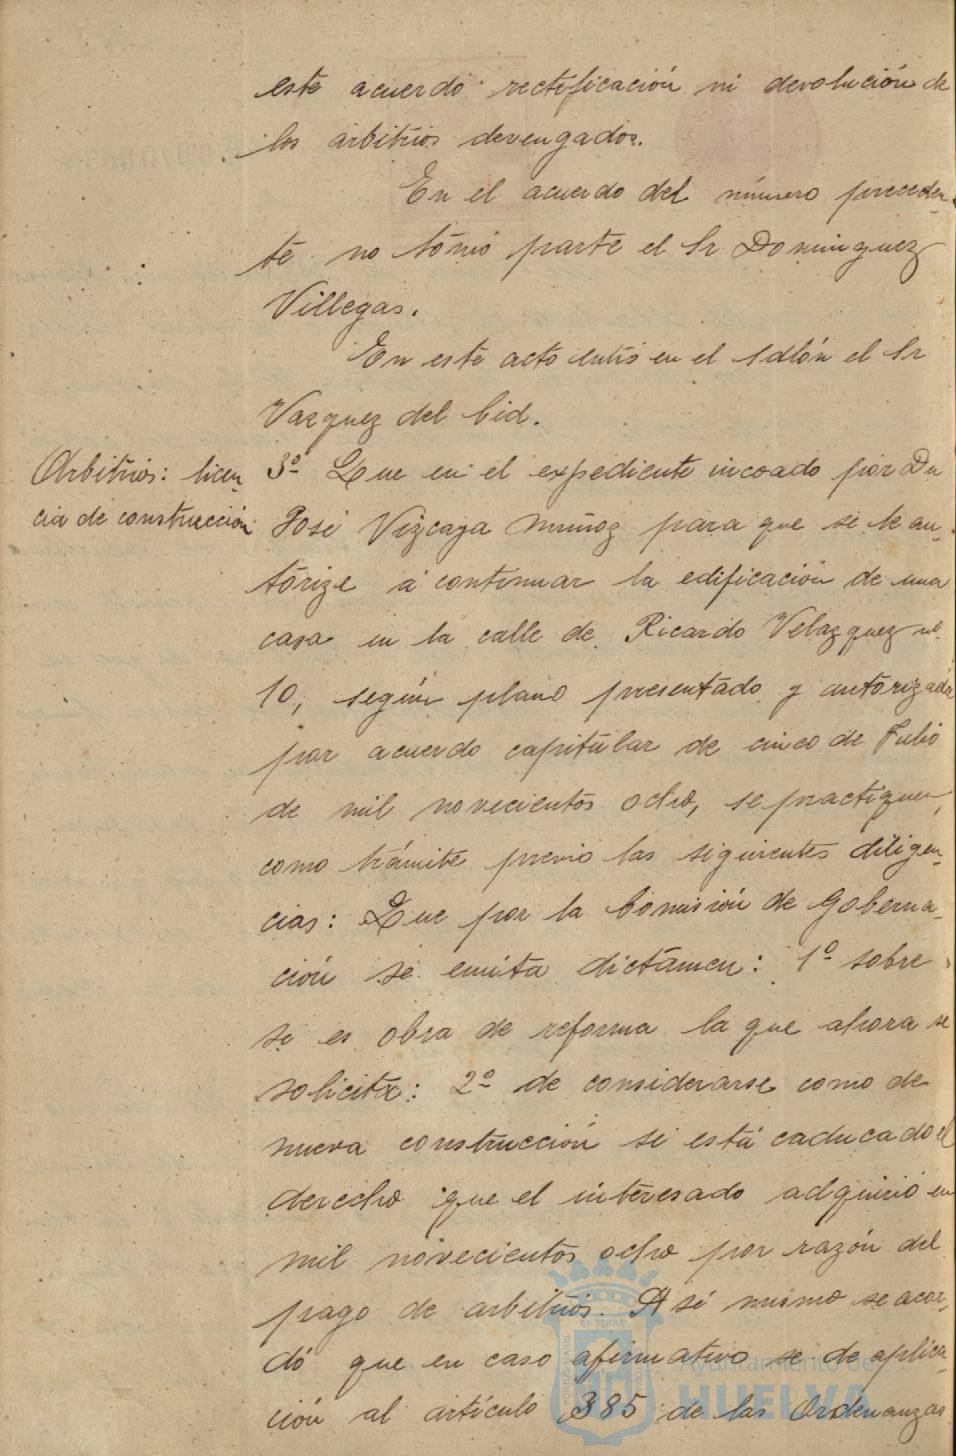 este acuerdo rectificación ni devolución de
los arbitrios devengados.
En el acuerdo del número preceden-
te no tomó parte el Sr Dominguez
Villegas.
En este acto entró en el salón el Sr
Vazquez del Cid.
Arbitrios: licen-
cia de construcción
3º Que en el expediente incoado por Dn
José Vizcaya Muñoz para que se le au-
torize á continuar la edificación de una
casa en la calle de Ricardo Velazquez nº
10, según plano presentado y autorizada
por acuerdo capitular de cinco de Julio
de mil novecientos ocho, se practiquen,
como trámite previo las siguientes diligen-
cias: Que por la Comisión de Goberna-
ción se emita dictámen: 1º sobre
si es obra de reforma la que ahora se
solicita: 2º de considerarse como de
nueva construcción si está caducado el
derecho que el interesado adquirió en
mil novecientos ocho por razón del
pago de arbitrios. Asi mismo se acor-
dó que en caso afirmativo se de aplica-
ción al artículo 385 de las Ordenanzas
Ayuntamiento de
HUELVA